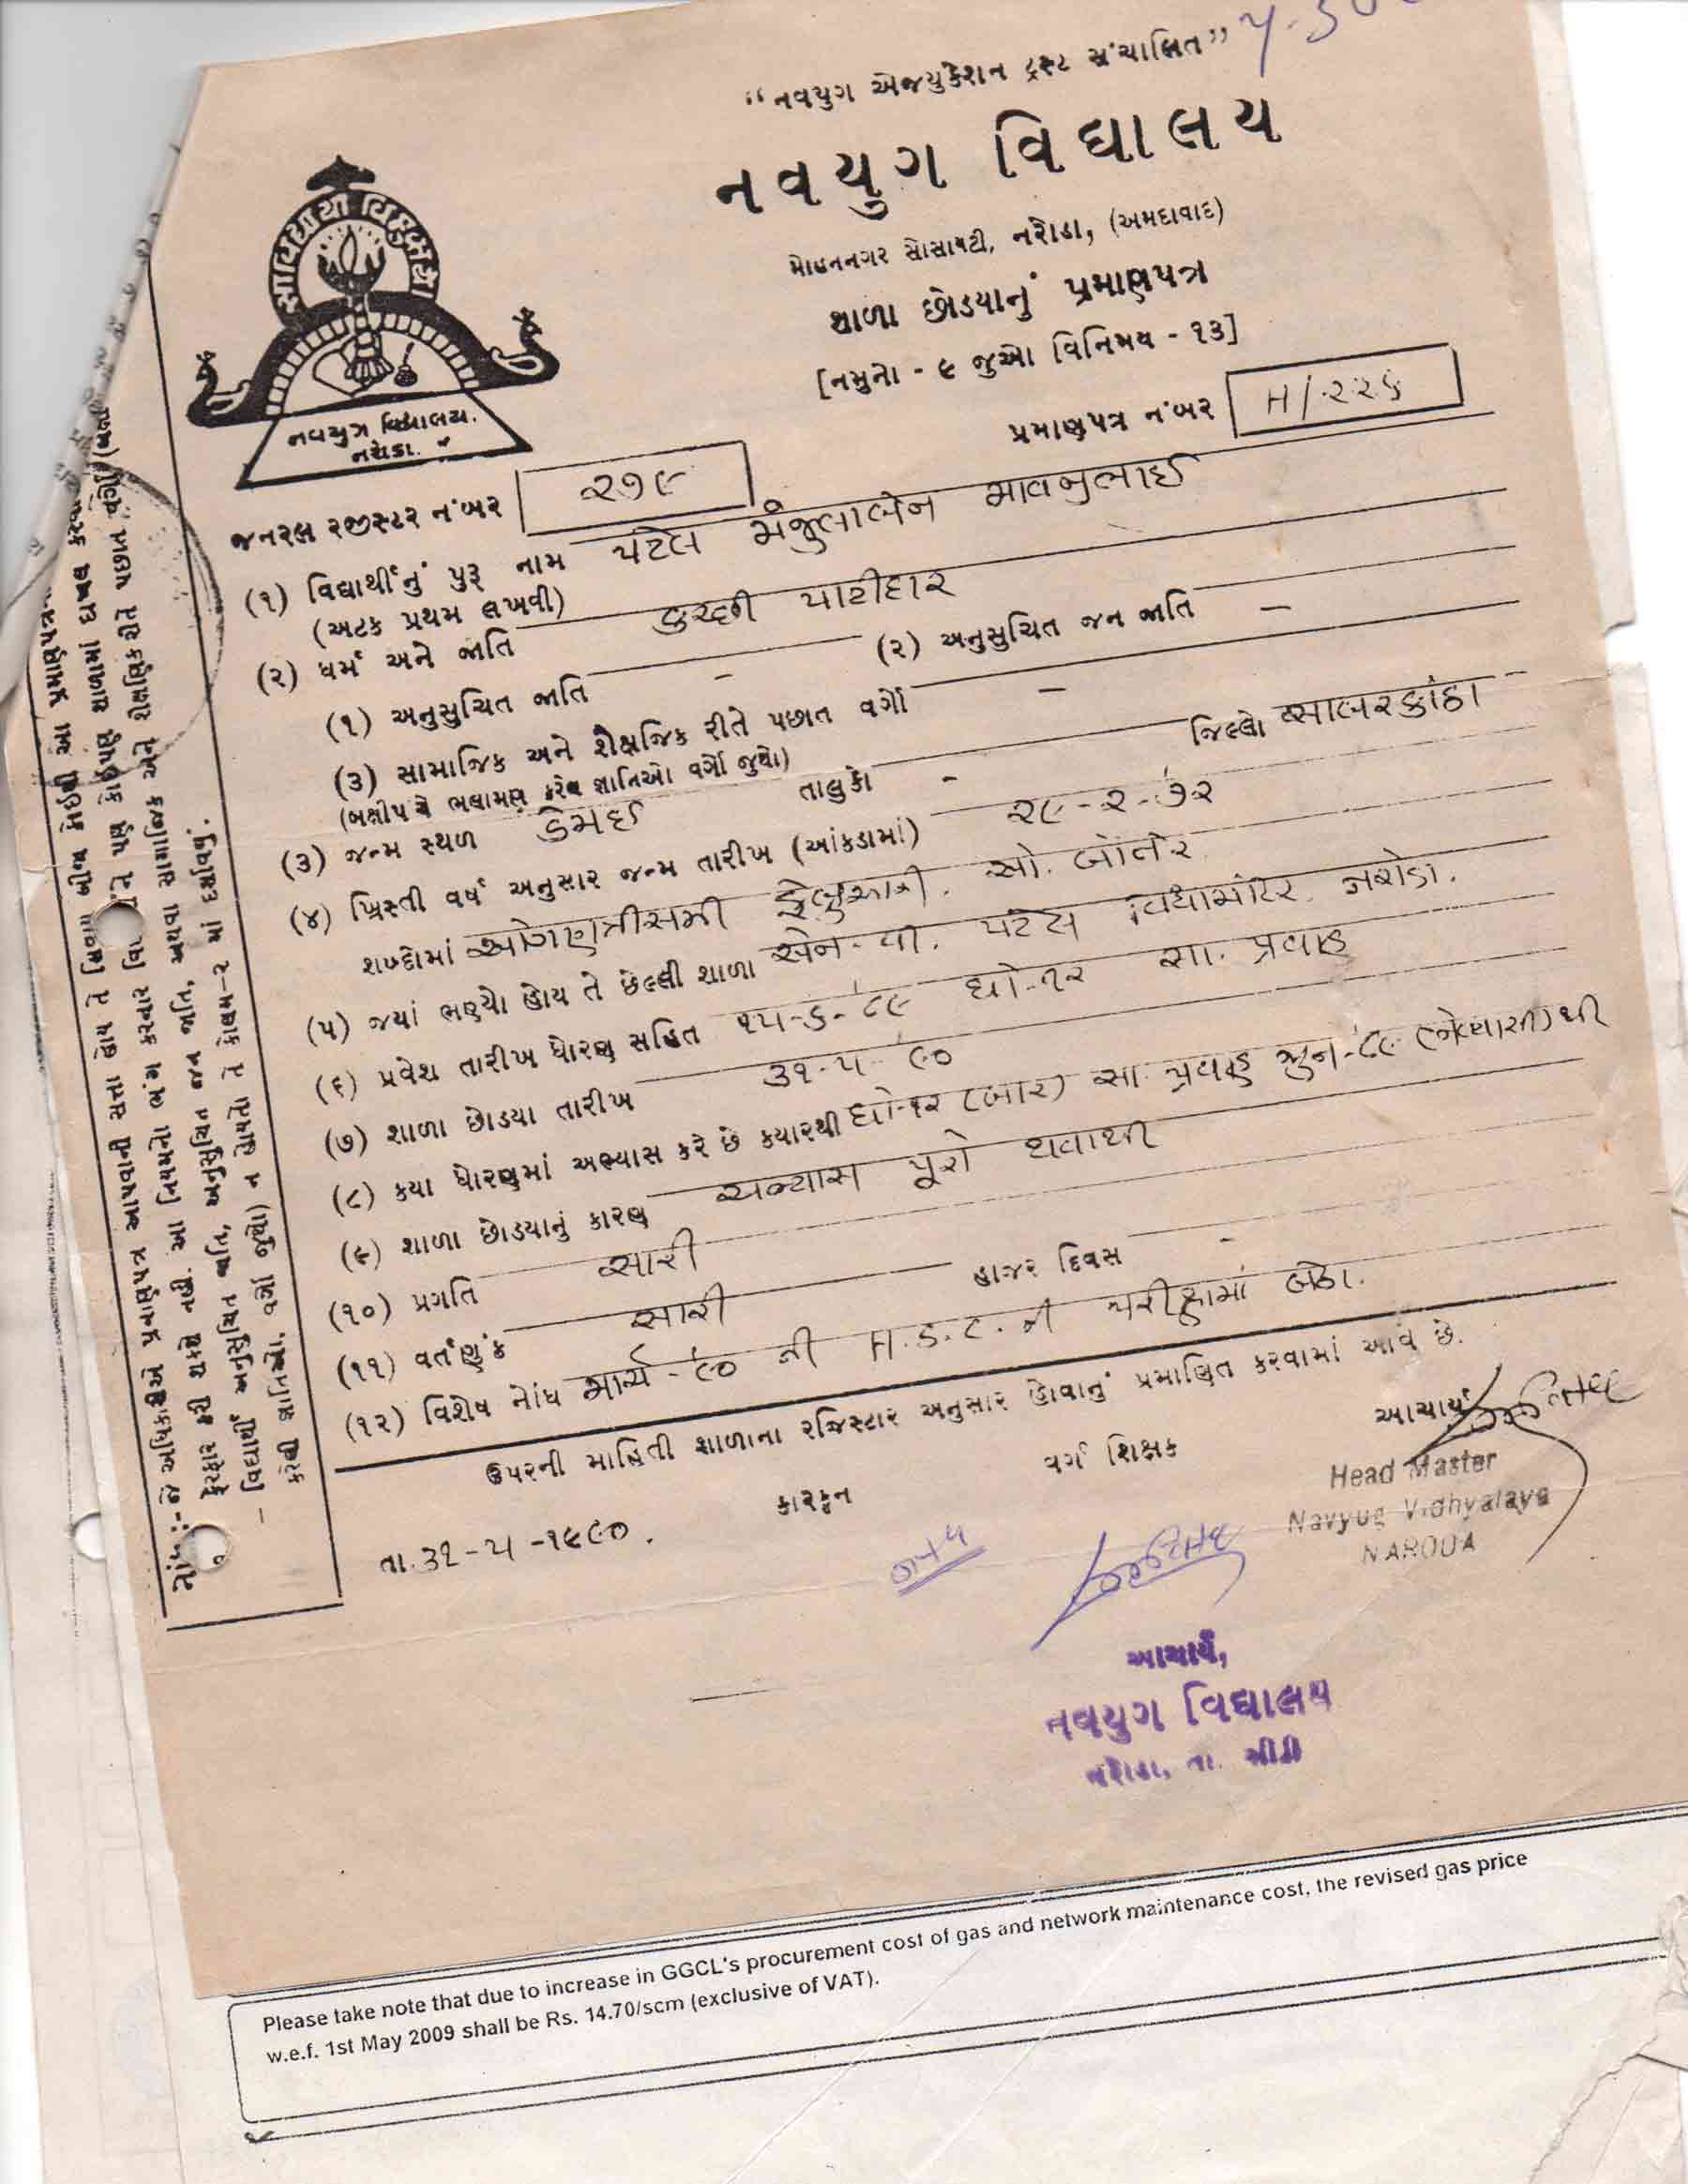 “નવયુગ એજયુકેશન ટ્રસ્ટ સંચાલિત”
નવયુગ વિદ્યાલય
મોહનનગર સોસાયટી, નરોડા, (અમદાવાદ)
શાળા છોડયાનું પ્રમાણપત્ર
[નમુનો - ૯ જુઓ વિનિમય - ૧૩]
પ્રમાણપત્ર નંબર H/૨૨૬
સા વિદ્યા યા વિમુક્તયે
નવયુગ વિદ્યાલય.
નરોડા.
જનરલ રજીસ્ટર નંબર ૨૭૯
(૧) વિદ્યાર્થીનું પુરૂ નામ પટેલ મંજુલાબેન માવજીભાઈ
(અટક પ્રથમ લખવી)
(૨) ધર્મ અને જાતિ કચ્છી પાટીદાર
(૧) અનુસુચિત જાતિ - (૨) અનુસુચિત જન જાતિ -
(૩) સામાજિક અને શૈક્ષણિક રીતે પછાત વર્ગો -
(બક્ષીપંચે ભલામણ કરેલ જ્ઞાતિઓ વર્ગો જુઓ)
(૩) જન્મ સ્થળ ડેમાઈ તાલુકો - જિલ્લો સાબરકાંઠા
(૪) ખ્રિસ્તી વર્ષ અનુસાર જન્મ તારીખ (આંકડામાં) ૨૯-૨-'૭૨
શબ્દોમાં ઓગણત્રીસમી ફેબ્રુઆરી. ઓ. બોંતેર
(૫) જયાં ભણ્યો હોય તે છેલ્લી શાળા એન. પી. પટેલ વિદ્યામંદિર. નરોડા.
(૬) પ્રવેશ તારીખ ધોરણ સહિત ૧૫-૬-'૮૯ ધો-૧૨ સા. પ્રવાહ
(૭) શાળા છોડયા તારીખ ૩૧-૫-'૯૦
(૮) કયા ધોરણમાં અભ્યાસ કરે છે કયારથી ધો-૧૨ (બાર) સા. પ્રવાહ જુન-'૮૯ (નેવ્યાસી) થી
(૯) શાળા છોડયાનું કારણ અભ્યાસ પૂરો થવાથી
(૧૦) પ્રગતિ સારી હાજર દિવસ -
(૧૧) વર્તણુંક સારી
(૧૨) વિશેષ નોંધ માર્ચ-'૯૦ ની H.S.C. ની પરીક્ષામાં બેઠા.
ઉપરની માહિતી શાળાના રજિસ્ટાર અનુસાર હોવાનું પ્રમાણિત કરવામાં આવે છે.
તા. ૩૧-૫-૧૯૯૦. કારકુન વર્ગ શિક્ષક આચાર્ય
Head Master
Navyug Vidhyalaya
NARODA
આચાર્ય,
નવયુગ વિદ્યાલય
નરોડા, તા. સીટી
નોંધ :- જે અધિકારીએ પ્રમાણપત્ર આપવાની સત્તા હોય તે સિવાય બીજા કોઇથી આ પ્રમાણપત્રમાં
ફેરફાર કરી શકાશે નહી. આ નિયમનો ભંગ કરનાર
- વિદ્યાર્થી અનુસુચિત જાતિ, અનુસુચિત જન જાતિ, અથવા સામાજીક અને શૈક્ષણિક રીતે પછાત વર્ગ
કરેલી જ્ઞાતિઓ, વર્ગો જુઓ) ન હોયતો તે કોલમ-૨ માં દર્શાવવું.
Please take note that due to increase in GGCL's procurement cost of gas and network maintenance cost, the revised gas price
w.e.f. 1st May 2009 shall be Rs. 14.70/scm (exclusive of VAT).